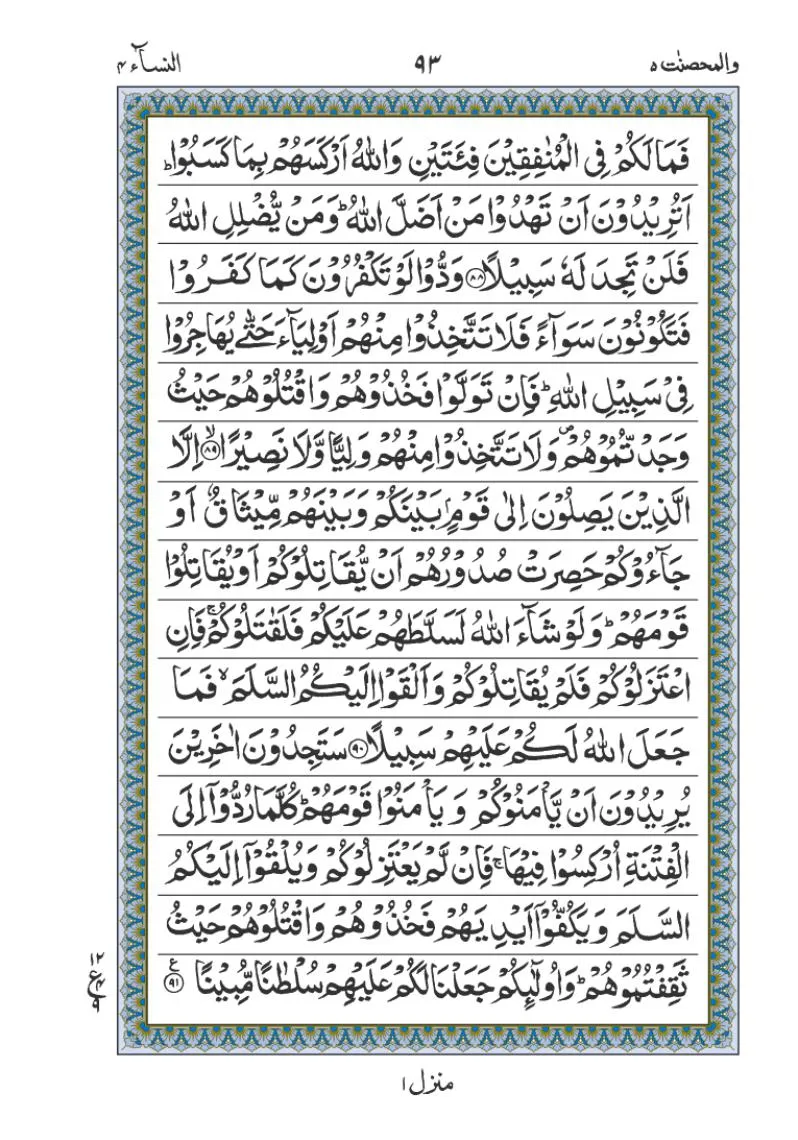 والمحصنٰت ۵ ۹۳ النسآء ۴
فَمَا لَكُمْ فِی الْمُنٰفِقِیْنَ فِئَتَیْنِ وَاللّٰهُ اَرْكَسَهُمْ بِمَا كَسَبُوْا ؕ
اَتُرِیْدُوْنَ اَنْ تَهْدُوْا مَنْ اَضَلَّ اللّٰهُ ؕ وَمَنْ یُّضْلِلِ اللّٰهُ
فَلَنْ تَجِدَ لَهٗ سَبِیْلًا ۝۸۸ وَدُّوْا لَوْ تَكْفُرُوْنَ كَمَا كَفَرُوْا
فَتَكُوْنُوْنَ سَوَآءً فَلَا تَتَّخِذُوْا مِنْهُمْ اَوْلِیَآءَ حَتّٰی یُهَاجِرُوْا
فِیْ سَبِیْلِ اللّٰهِ ؕ فَاِنْ تَوَلَّوْا فَخُذُوْهُمْ وَاقْتُلُوْهُمْ حَیْثُ
وَجَدْتُّمُوْهُمْ ۪ وَلَا تَتَّخِذُوْا مِنْهُمْ وَلِیًّا وَّلَا نَصِیْرًا ۝۸۹ ۙ اِلَّا
الَّذِیْنَ یَصِلُوْنَ اِلٰی قَوْمٍۭ بَیْنَكُمْ وَبَیْنَهُمْ مِّیْثَاقٌ اَوْ
جَآءُوْكُمْ حَصِرَتْ صُدُوْرُهُمْ اَنْ یُّقَاتِلُوْكُمْ اَوْ یُقَاتِلُوْا
قَوْمَهُمْ ؕ وَلَوْ شَآءَ اللّٰهُ لَسَلَّطَهُمْ عَلَیْكُمْ فَلَقٰتَلُوْكُمْ ۚ فَاِنِ
اعْتَزَلُوْكُمْ فَلَمْ یُقَاتِلُوْكُمْ وَاَلْقَوْا اِلَیْكُمُ السَّلَمَ ۙ فَمَا
جَعَلَ اللّٰهُ لَكُمْ عَلَیْهِمْ سَبِیْلًا ۝۹۰ سَتَجِدُوْنَ اٰخَرِیْنَ
یُرِیْدُوْنَ اَنْ یَّاْمَنُوْكُمْ وَیَاْمَنُوْا قَوْمَهُمْ ؕ كُلَّمَا رُدُّوْۤا اِلَی
الْفِتْنَةِ اُرْكِسُوْا فِیْهَا ۚ فَاِنْ لَّمْ یَعْتَزِلُوْكُمْ وَیُلْقُوْۤا اِلَیْكُمُ
السَّلَمَ وَیَكُفُّوْۤا اَیْدِیَهُمْ فَخُذُوْهُمْ وَاقْتُلُوْهُمْ حَیْثُ
ثَقِفْتُمُوْهُمْ ؕ وَاُولٰٓئِكُمْ جَعَلْنَا لَكُمْ عَلَیْهِمْ سُلْطٰنًا مُّبِیْنًا ۝۹۱ ع
۱۲
ع ۴
۹
منزل ۱